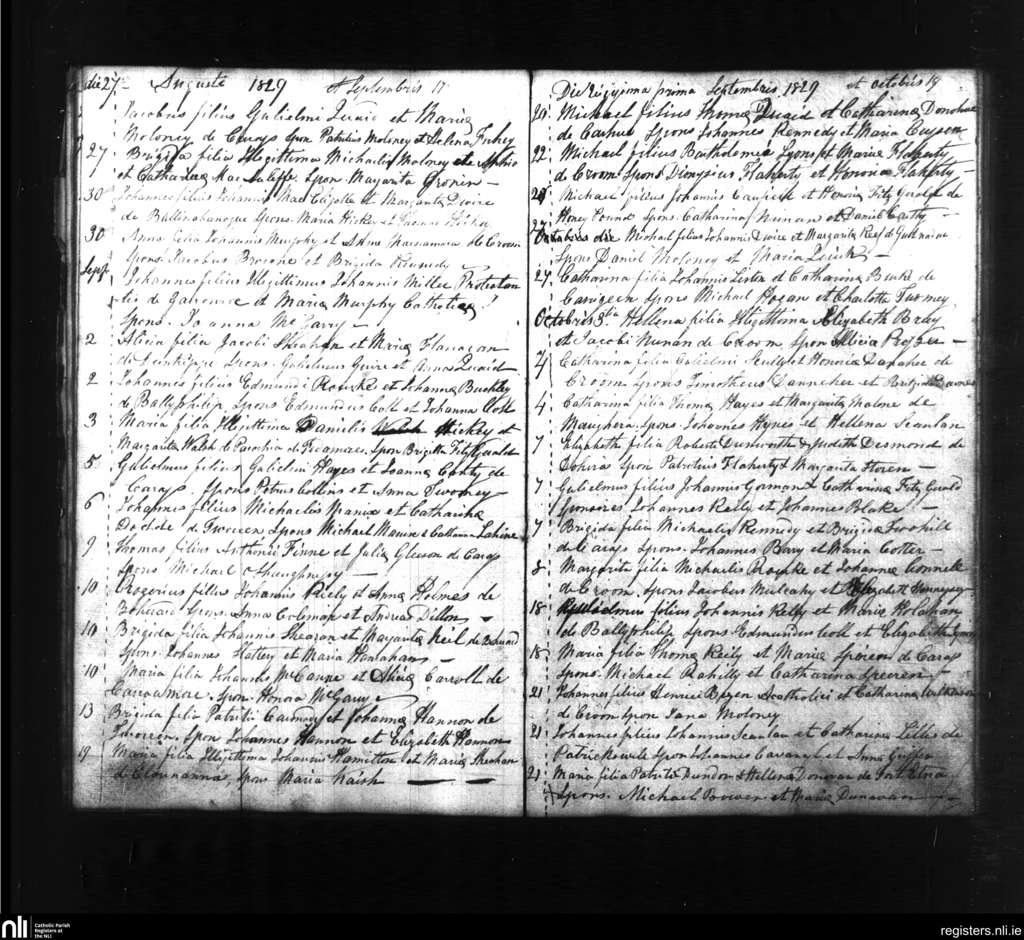 die 27 Augusti 1829 et Septembris 17
Jacobus filius Gulielmi Quaid et Maria
Moloney de Carass Spon Patritius Moloney et Helena Fuhey
27 Brigida filia Illegittima Michaelis Molony
et Catharina Mac Auliffe. Spon. Margarita Cronin
30 Johannes filius Johannis Mac Eligott et Margarita Dwire
de Ballinabanogue Spons. Maria Hickey et Thomas Hickey
30 Anna filia Johannis Murphy et Anna Macnamara de Croom
Spons Jacobus Browne et Brigida Kennedy
Sept Johannes filius Illegittimus Johannis Miller Protestan
tis de Garouse et Maria Murphy Catholica
Spons. Joanna McGarry
2 Alicia filia Jacobi Sheahan et Maria Flanagan
Spons. Gulielmus et Anna Quaid
2 Johannes filius Edmundi Rourke et Johanna Buckley
de Ballyphilip Spons Edmundus Coll et Johanna Coll
3 Maria filia Illegittima Danielis Hickey et
Margarita Walsh de Parochia de Fedamore. Spon Brigitta FitzGerald
5 Gulielmus filius Gulielmi Hayes et Joanna Costy de
Carass. Spons Petrus Collins et Anna Twomey
6 Johannes filius Michaelis et Catharina
de Tworeen Spons Michael et Catharina Lahive
9 Thomas filius Anthonii Finne et Julia Gleeson de Carass
Spons Michael O Shaughnessy
10 filius Johannis Riely et Anna Holmes de
Boherard Spons. Anna Coleman et Andrea Dillon
10 Brigida filia Johannis Sheason et Margarita Neil de
Spons Johannes Slattery et Maria Hanrahan
10 Maria filia Johannis McCanne et Alicia Carroll de
Carranmac. Spon. Honora McGarry
13 Brigida filia Patritii et Johanna Hannon de
Tworeen. Spon Johannes Hannon et Elizabeth Hannon
19 Maria filia Illegittima Johannis Hamilton et Maria Sheehan
de Clounanna, Spons Maria Naish
Die Vigesima prima Septembris 1829 et Octobris 19
20 Michael filius Thoma Quaid et Catharina Donohue
de Cashue Spons Johannes Kennedy et Maria
22 Michael filius Bartholomei Lyons et Maria Flaherty
de Croom Spons Dionysius Flaherty et Honora Flaherty
Michael filius Johannis et Honora Fitz Gerald de
Honey Pound Spons Catharina Nunan et Daniel Carthy
27 Octobris die Michael filius Johannis Dwire et Margarita
Spons Daniel Moloney et Maria Quirk
27 Catharina filia Johannis Liston et Catharina Bourke de
Carrigeen Spons Michael Hogan et Charlotte Turney
Octobris 3tia Hellena filia Illegittima Elizabeth Bray
et Jacobi Nunan de Croom. Spon Alicia Roffer
4 Catharina filia Gulielmi Scully et Honora Danaher de
Croom Spons Timotheus Danneher et Bridgid
4 Catharina filia Thoma Hayes et Margarita Malone de
Maughera Spons Johannes Hynes et Hellena Scanlan
7 Elizabeth filia Roberti Dunworth & Judith Desmond de
Spon Patritius Flaherty & Margarita Horen
7 Gulielmus filius Johannis Gorman & Catharina Fitz Gerald
Johannes Kelly et Johannes Blake
7 Brigida filia Michaelis Kennedy et Brigida Foochill
de Carass Spons. Johannes Barry et Maria Cotter
8 Margarita filia Michaelis Rourke et Johanna Connell
de Croom. Spons Jacobus Mulcahy et Elizabeth Hennessy
18 Gulielmus filius Johannis Kelly et Maria Holahan
de Ballyphilip Spons Edmundus Coll et Elizabeth
18 Maria filia Thoma Reily et Maria Speeren de Carass
Spons. Michael Rahilly et Catharina Speeren
21 Johannes filius Henrici Bryen Acatholici et Catharina
de Croom Spon Jana Moloney
21 Johannes filius Johannis Scanlan et Catharina Lillis de
Patrickswell Spon Johannes Cavanagh et Anna Griffin
21 Maria filia Patritii Dundon & Hellena Donovan de Fort Etna
Spons. Michael Power et Maria Dunavan
nli Catholic Parish
Registers at
the NLI
registers.nli.ie